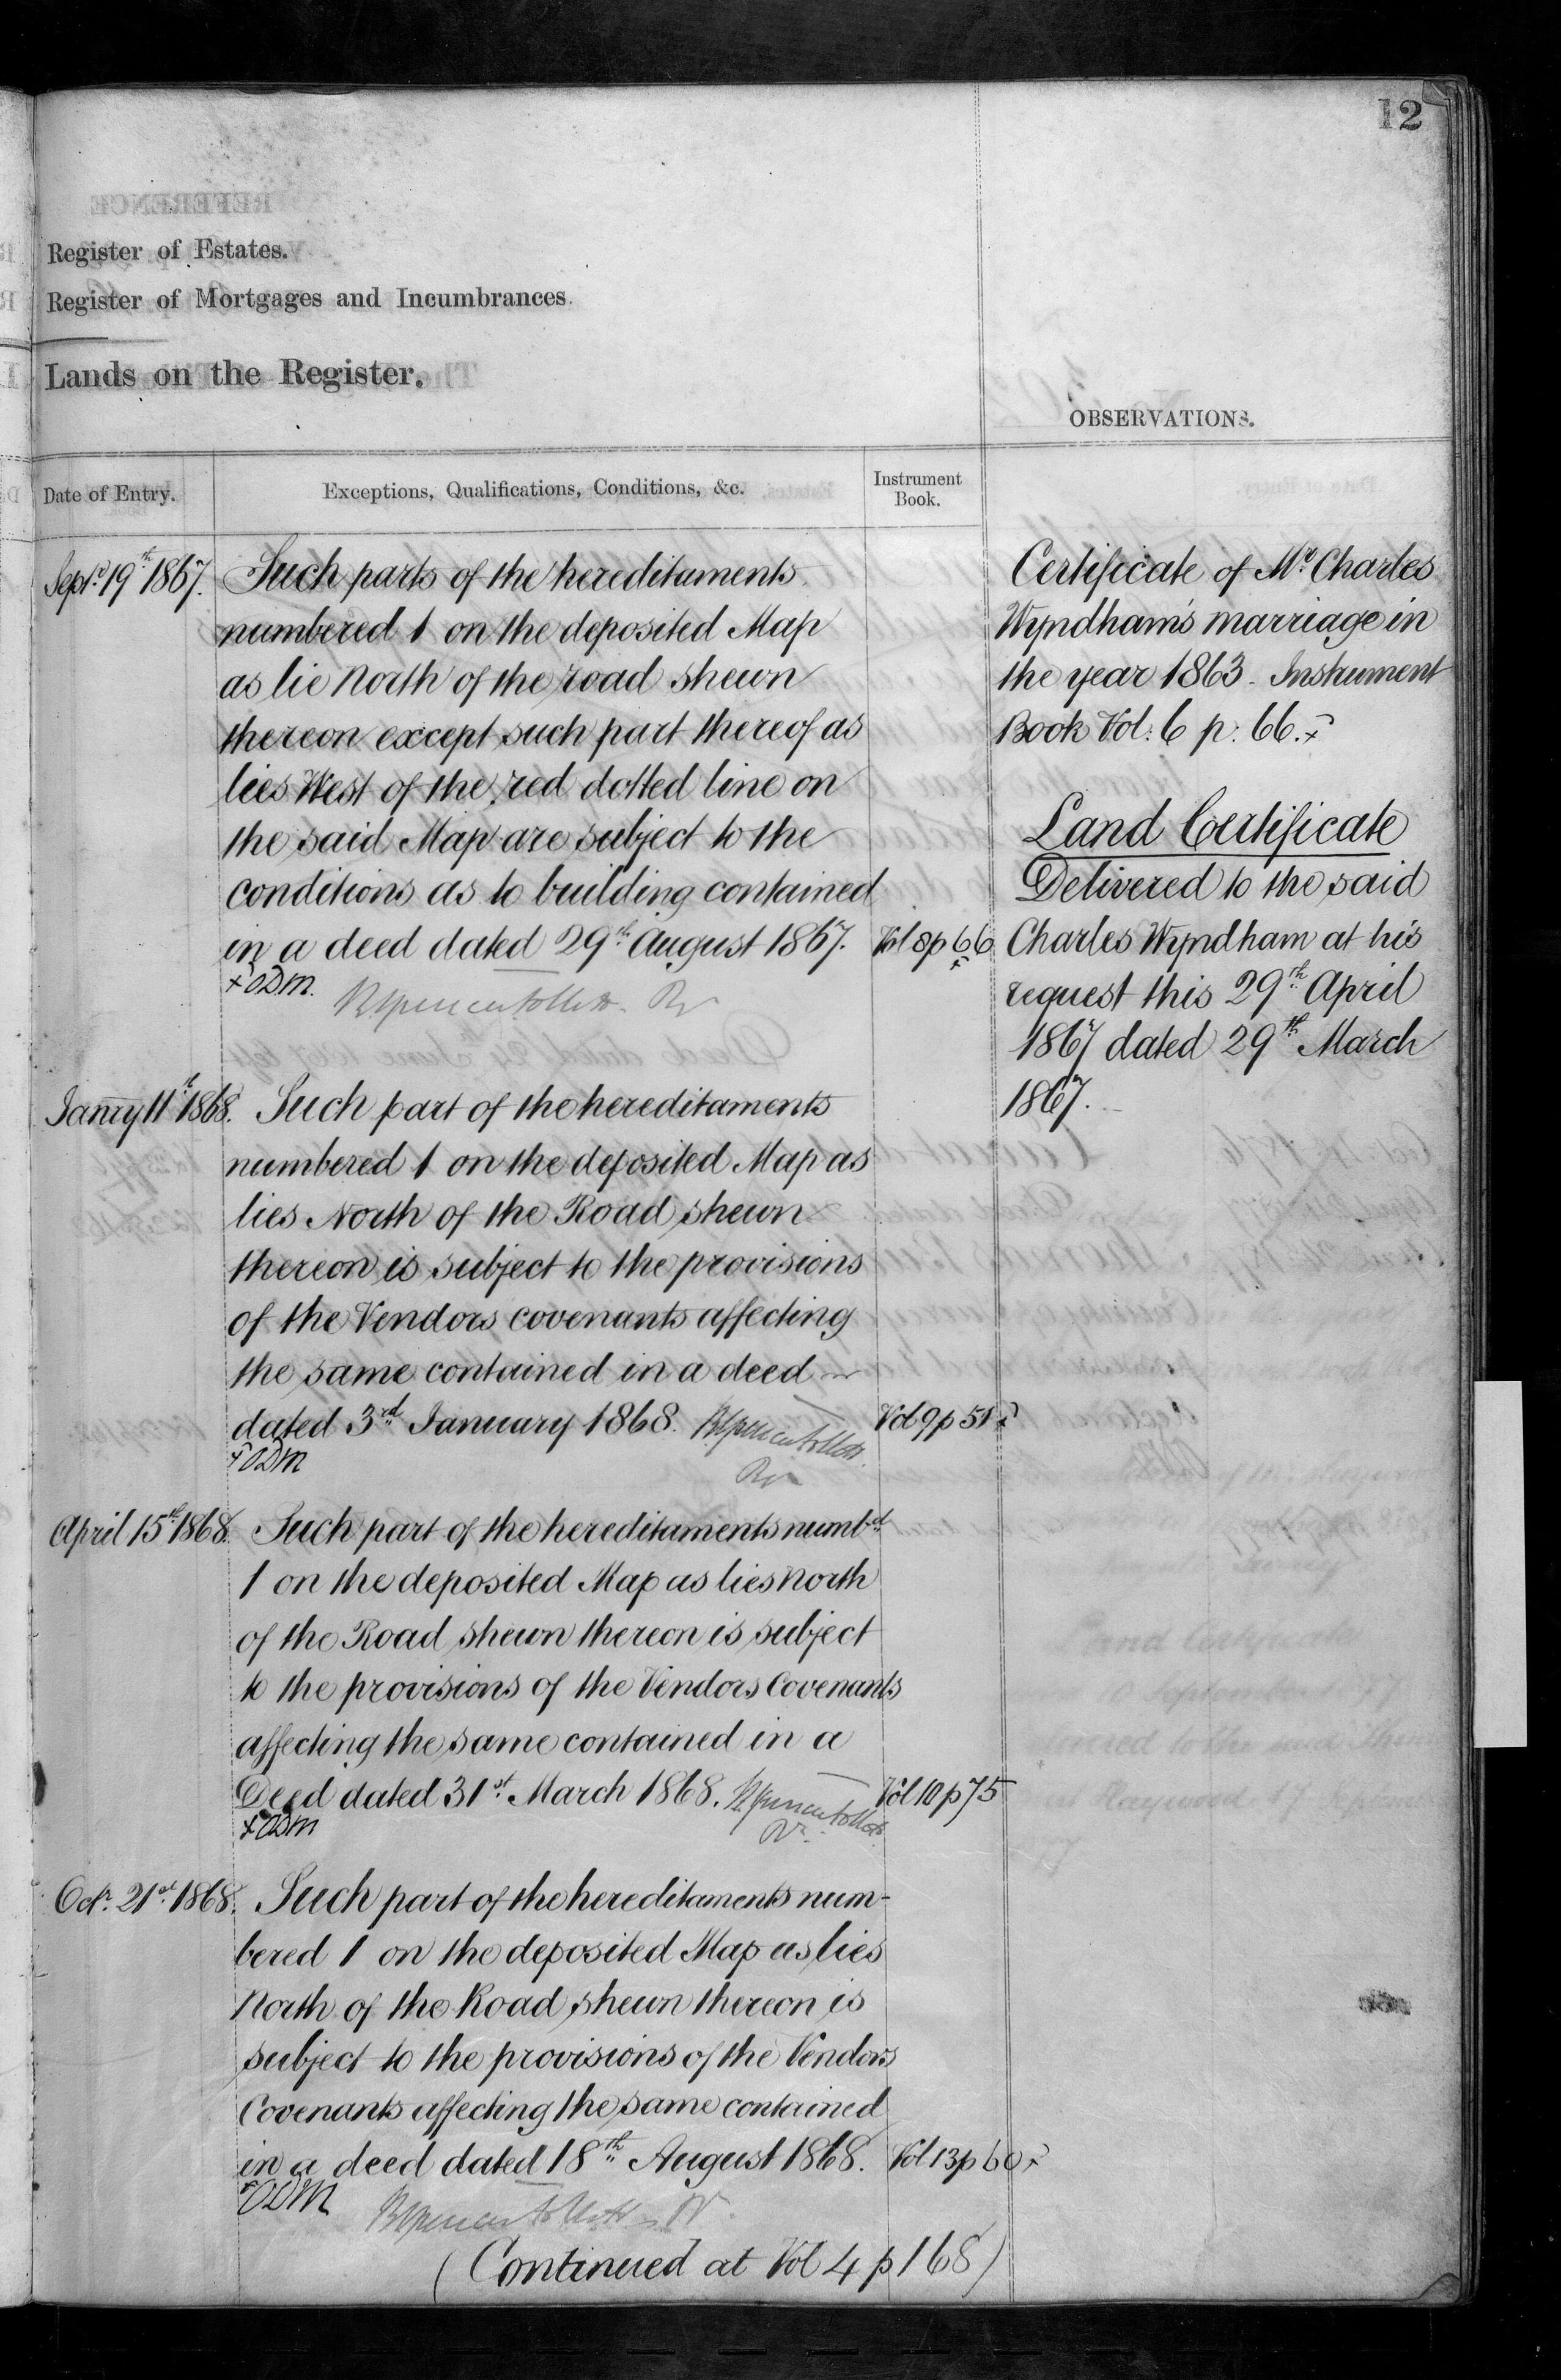 12
Register of Estates.
Register of Mortgages and Incumbrances.
Lands on the Register.
OBSERVATIONS.
Date of Entry.
Exceptions, Qualifications, Conditions, &c.
Instrument
Book.
Septr. 19th 1867.
Such parts of the hereditaments
numbered 1 on the deposited Map
as lie North of the road shewn
thereon except such part thereof as
lies West of the red dotted line on
the said Map are subject to the
conditions as to building contained
in a deed dated 29th August 1867.
Vol 8 p 66
ODM.
Janry 11th 1868.
Such part of the hereditaments
numbered 1 on the deposited Map as
lies North of the Road shewn
thereon is subject to the provisions
of the Vendors covenants affecting
the same contained in a deed
dated 3rd January 1868.
Vol 9 p 51
ODM
April 15th 1868.
Such part of the hereditaments numbd
1 on the deposited Map as lies North
of the Road shewn thereon is subject
to the provisions of the Vendors Covenants
affecting the same contained in a
Deed dated 31st March 1868.
Vol 10 p 75
ODM
Octr. 21st 1868.
Such part of the hereditaments num-
bered 1 on the deposited Map as lies
North of the Road shewn thereon is
subject to the provisions of the Vendors
Covenants affecting the same contained
in a deed dated 18th August 1868.
Vol 13 p 60
ODM
(Continued at Vol 4 p 168)
Certificate of Mr Charles
Wyndham's marriage in
the year 1863. Instrument
Book Vol: 6 p. 66.
Land Certificate
Delivered to the said
Charles Wyndham at his
request this 29th April
1867 dated 29th March
1867.